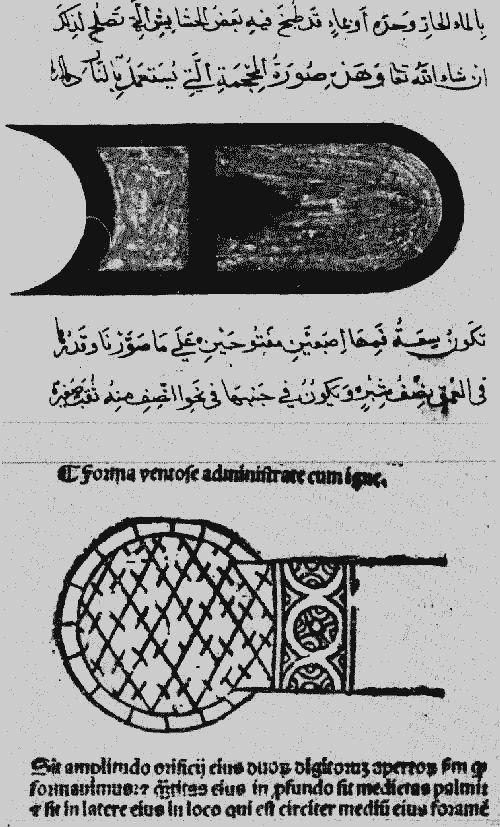 بالماء الحار وحده أو بماء قد طبخ فيه بعض الحشايش التي تصلح لذلك
ان شاء الله تعا وهذه صورة المحجمة التي تستعمل بالنار
تكون سعة فمها اصبعين مفتوحتين على ما صورنا وقدرها
في العمق نصف شبر وتكون في جنبها في نحو النصف منه ثقب صغير
¶ Forma ventose administrate cum igne.
Sit amplitudo orificij eius duoꝝ digitorꝫ apertoꝝ ẜm ꝙ
formauimus: ⁊ q̃titas eius in ꝓfundo sit medietas palmi:
⁊ sit in latere eius in loco qui est circiter mediũ eius foramẽ